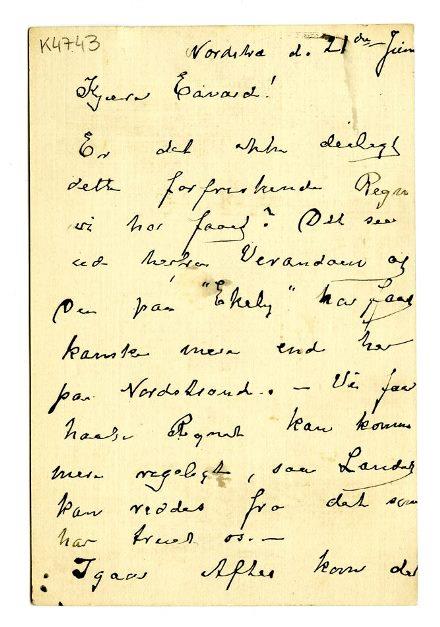 K4743
Nordstra d. 21de Juni
Kjære Edvard!
Er det ikke deiligt
dette forfriskende Regn
vi har faaet? Det sees
ud herfra Verandaen og
Du paa "Ekely" har faaet
kanske mere end her
paa Nordstrand. — Vi faa
haabe Regnet kan komme
mere regelegt, saa Landet
kan reddes fra det som
har truet os. —
Igaar Aftes kom det